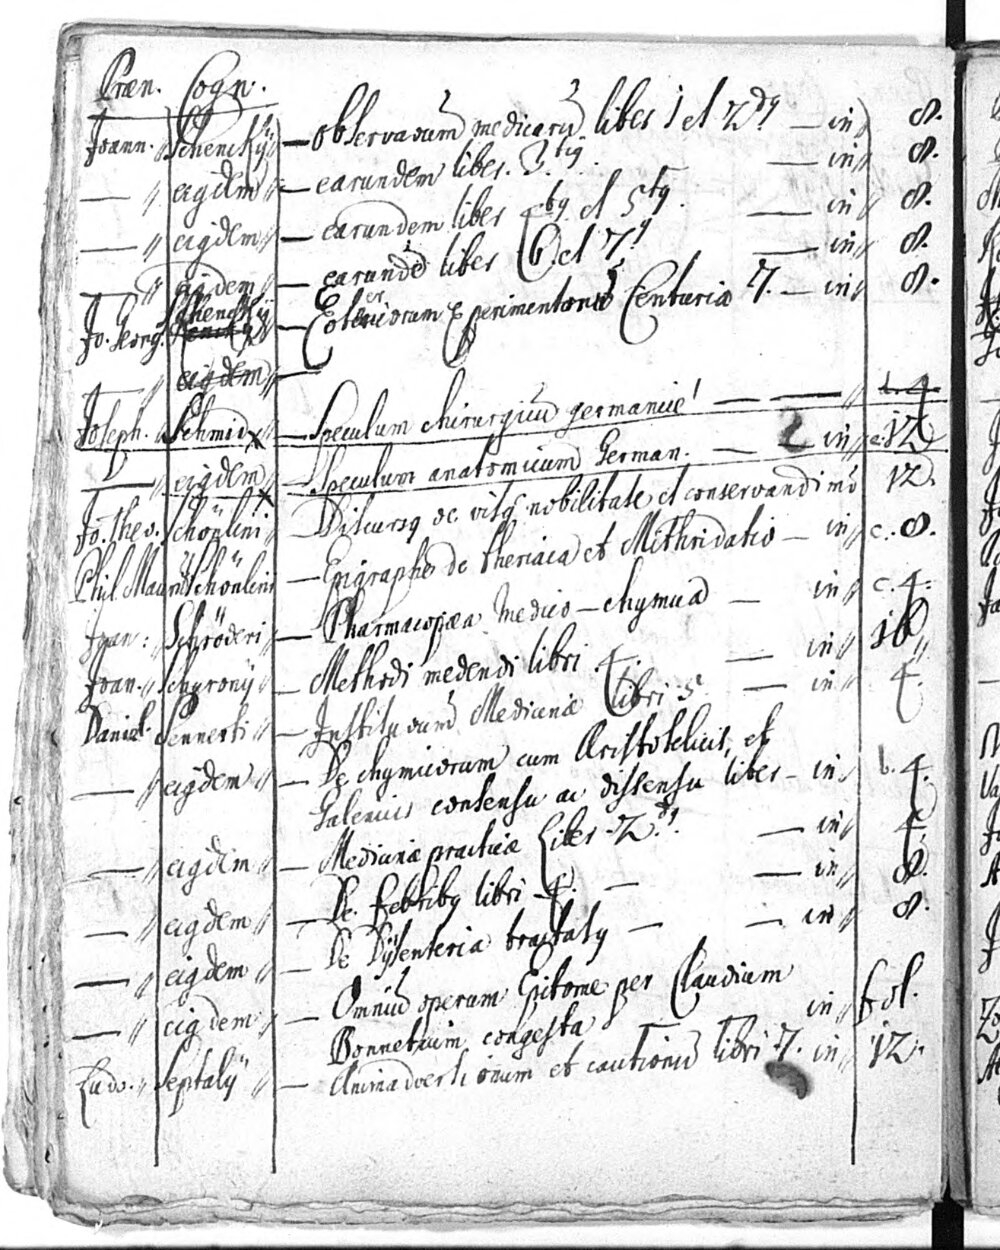 Præn. Cogn.
Joann. Schenckÿ — observationũ medicarũ liber 1 et 2dus — in 8.
— eigdem — earundem liber 3.tius — in 8.
— eigdem — earundem liber 4tus et 5tus. — in 8.
— eigdem — earundẽ liber 6 et 7 — in 8.
Jo. Georg. Schenckÿ — Exoticorum Experimentorũ Centuriæ 7. — in 8.
— eigdem —
Joseph. Schmid — Speculum chirurgicũ germanicè — 4
— eigdem — Speculum anatomicum German. — 2 in 12
Jo. theo. Schönlini — Discursq de vitæ nobilitate et conservandi mõ 12.
Phil. Maur. Schönlini — Epigraphe de theriaca et Mithridatio — in c. 8.
Joan: Schröderi — Pharmacopæa Medico-chymica — in c. 4.
Joan. Schyronÿ — Methodi medendi libri — in 16
Daniel. Sennerti — Institutionũ Medicinæ libri 5 — in 4.
— eigdem — De chymicorum cum Aristotelicis, et
Galenicis consensu ac dissensu liber — in b. 4.
— eigdem — Medicinæ practicæ Liber 2dus. — in 4.
— eigdem — De febribq libri 4. — in 8.
— eigdem — De Dÿsenteria tractatq — in 8.
— eigdem — Omniũ operum Epitome per Claudium
Bonnetium congesta in fol.
Ludo. Septalÿ — Animadversionum et cautionũ libri 7. in 12.